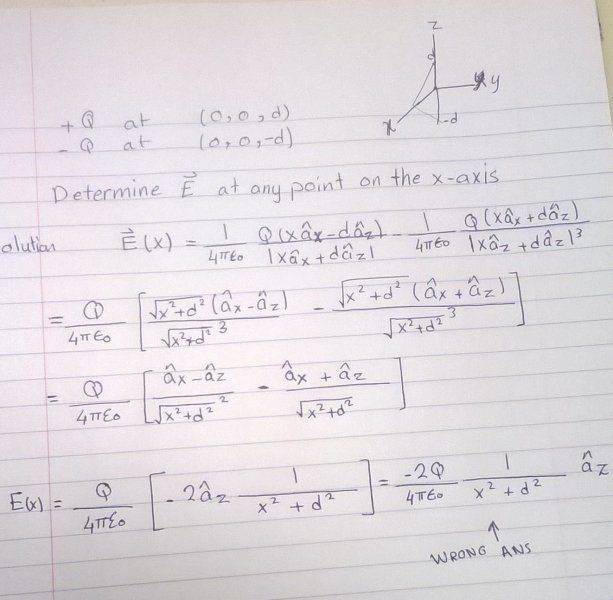 z
d
y
x
-d
+Q at (0,0,d)
-Q at (0,0,-d)
Determine E⃗ at any point on the x-axis
olution E⃗(x) = 1/4πε₀ Q(xâx-dâz)/|xâx+dâz| - 1/4πε₀ Q(xâx+dâz)/|xâz+dâz|³
= Q/4πε₀ [√x²+d² (âx-âz)/√x²+d²³ - √x²+d² (âx+âz)/√x²+d²³]
= Q/4πε₀ [âx-âz/√x²+d²² - âx+âz/√x²+d²]
E(x) = Q/4πε₀ [-2âz 1/x²+d²] = -2Q/4πε₀ 1/x²+d² âz
↑
WRONG ANS